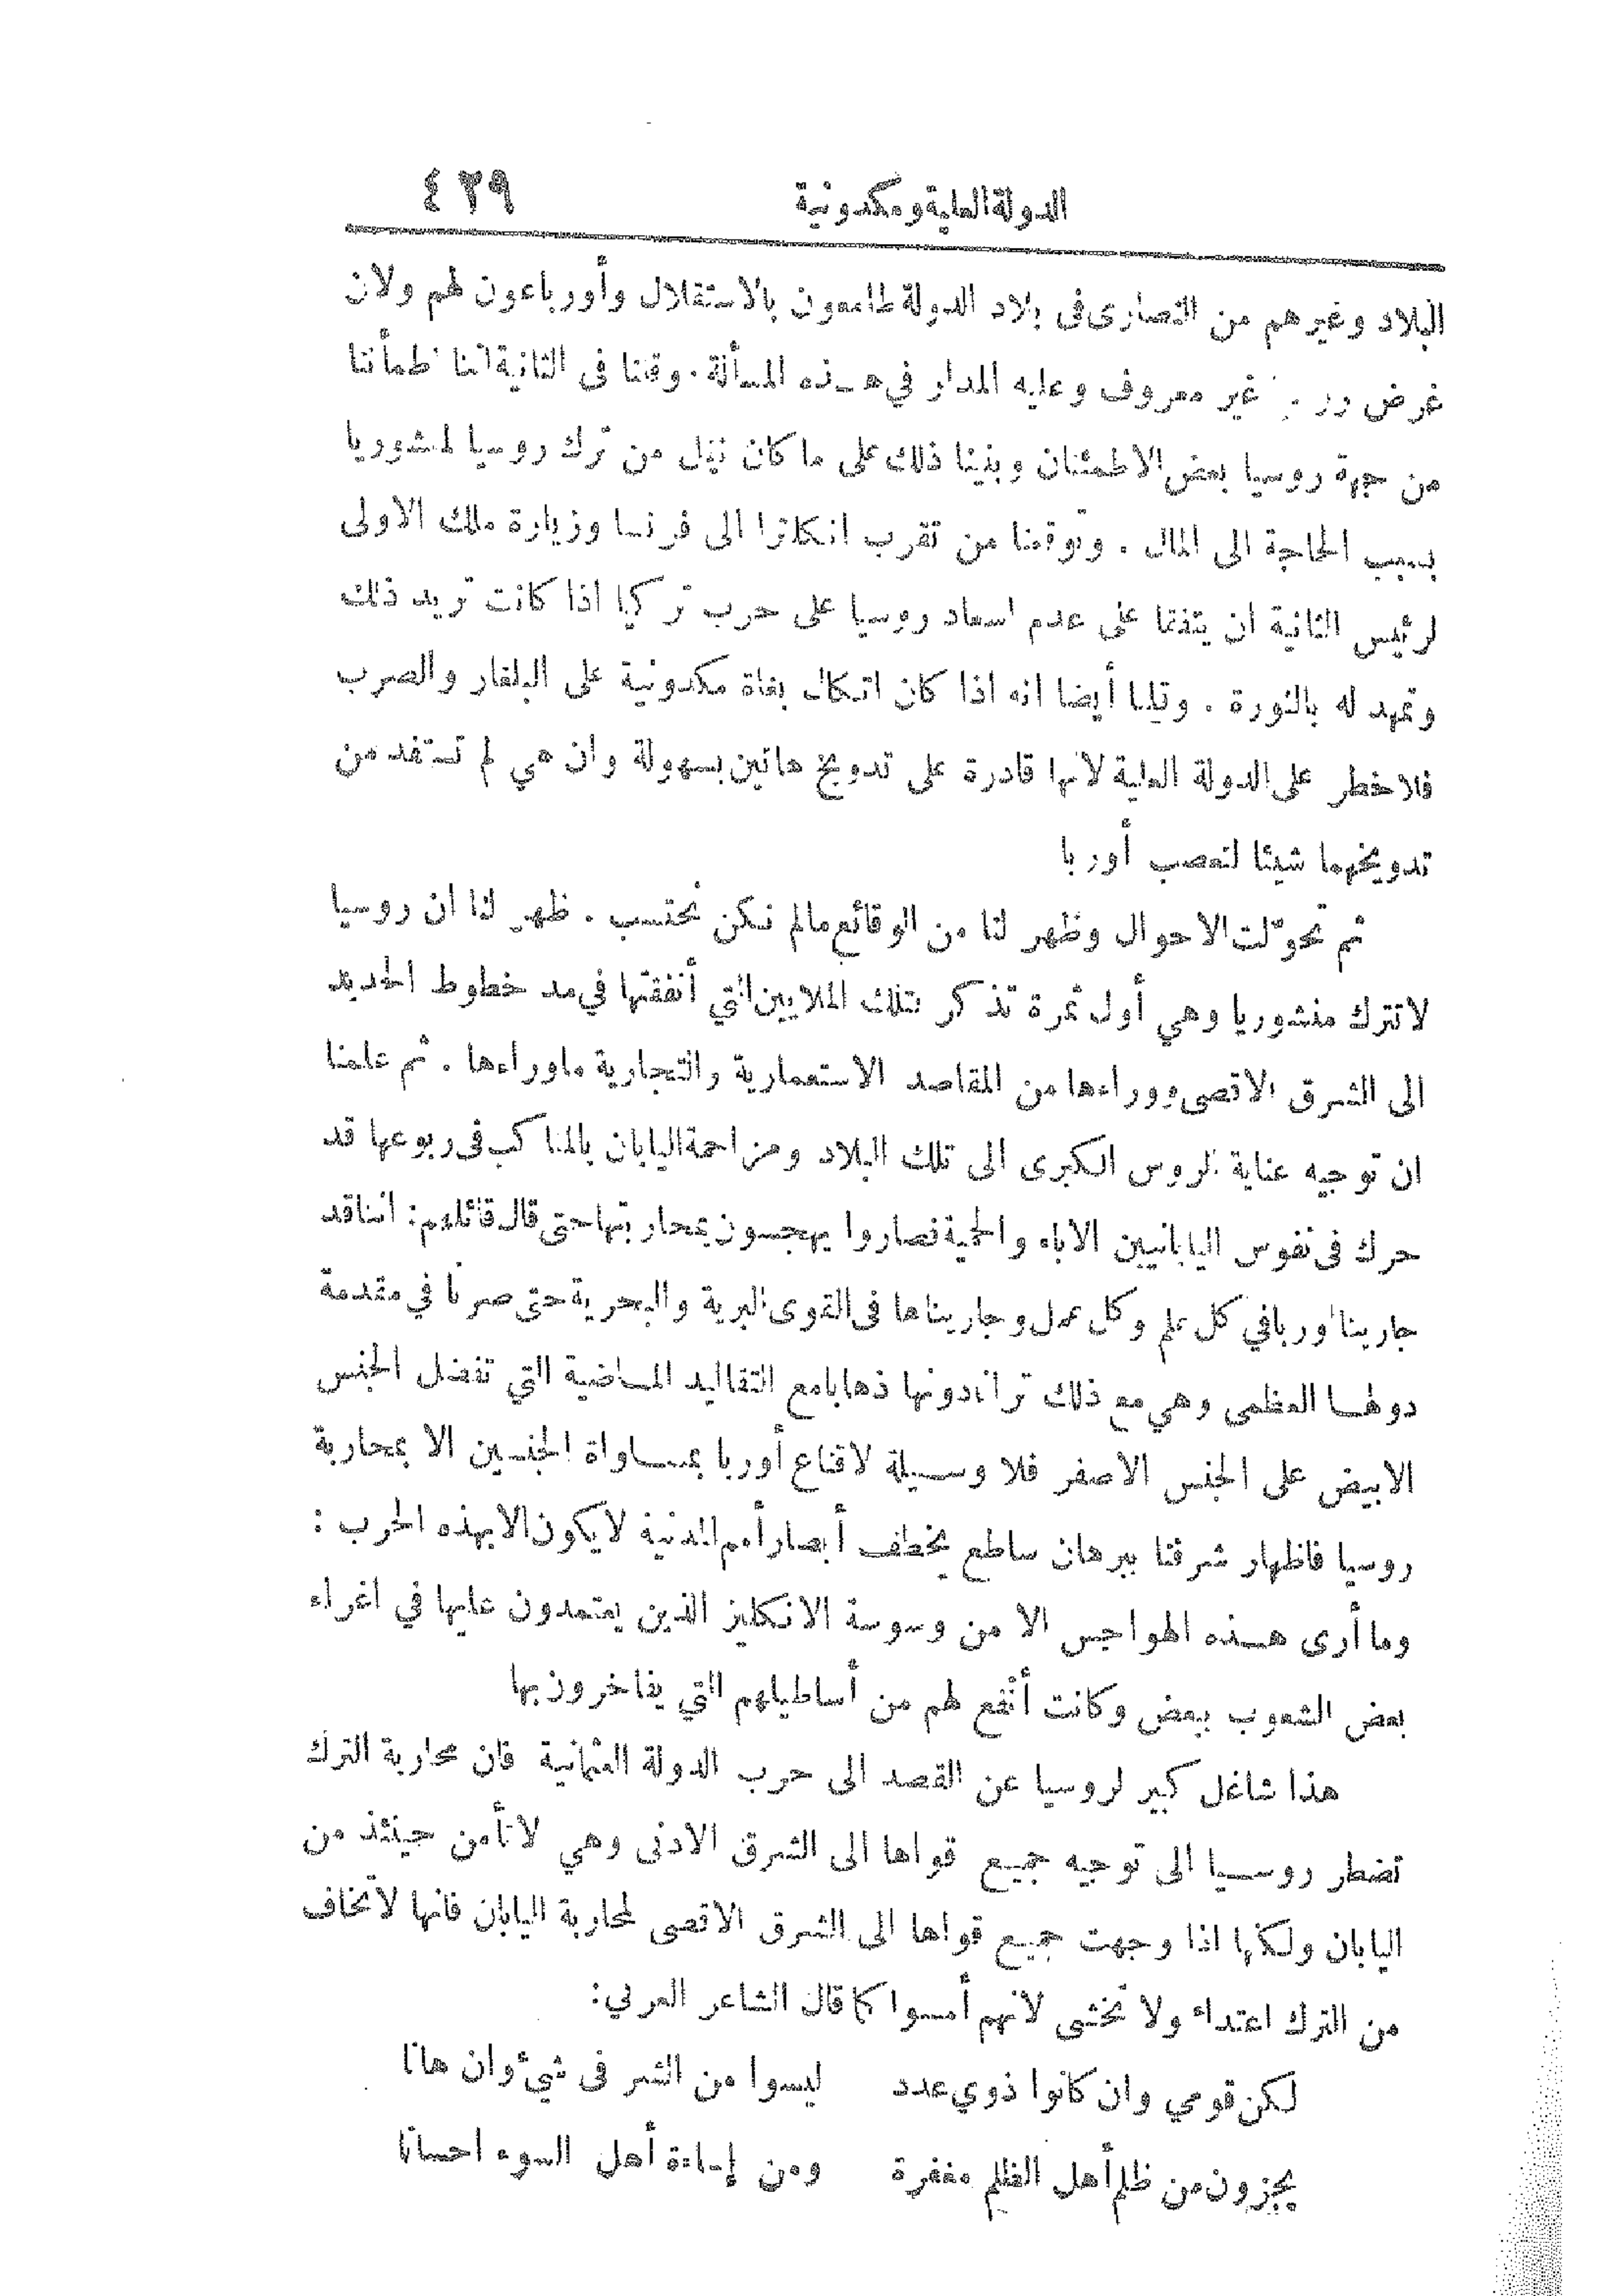 الدولة العلية ومكدونية ٤٣٩
البلاد وغيرهم من النصارى فى بلاد الدولة طامعون بالاستقلال وأوربا عون لهم ولان
غرض غير معروف وعليه المدار في هـذه المسألة. وقلنا فى الثانية اننا اطمأننا
من جهة روسيا بعض الاطمئنان وبنينا ذلك على ما كان نقل من ترك روسيا لمنشوريا
بسبب الحاجة الى المال . وتوقعنا من تقرب انكلترا الى فرنسا وزيارة ملك الاولى
لرئيس الثانية أن يتفقا على عدم اسعاد روسيا على حرب تركيا اذا كانت تريد ذلك
وتمهد له بالثورة . وقلنا أيضا انه اذا كان اتكال بغاة مكدونية على البلغار والصرب
فلا خطر على الدولة العلية لانها قادرة على تدويخ هاتين بسهولة وان هي لم تستفد من
تدويخهما شيئا لتعصب أوربا
ثم تحوّلت الاحوال وظهر لنا من الوقائع مالم نكن نحتسب . ظهر لنا ان روسيا
لا تترك منشوريا وهي أول ثمرة تذكر لتلك الملايين التي أنفقتها في مد خطوط الحديد
الى الشرق الاقصى ووراءها من المقاصد الاستعمارية والتجارية ماوراءها . ثم علمنا
ان توجيه عناية الروس الكبرى الى تلك البلاد ومزاحمة اليابان بالمناكب فى ربوعها قد
حرك فى نفوس اليابانيين الاباء والحمية فصاروا يهجسون بمحاربتها حتى قال قائلهم: اننا قد
جارينا أوربا في كل علم وكل عمل وجاريناها فى القوى البرية والبحرية حتى صرنا في مقدمة
دولهـا العظمى وهي مع ذلك ترانا دونها ذهابا مع التقاليد المـاضية التي تفضل الجنس
الابيض على الجنس الاصفر فلا وسـيلة لاقناع أوربا بمسـاواة الجنسـين الا بمحاربة
روسيا فاظهار شرفنا ببرهان ساطع يخطف أبصار أمم المدنية لا يكون الا بهذه الحرب :
وما أرى هـذه الهواجس الا من وسوسة الانكليز الذين يعتمدون عليها في اغراء
بعض الشعوب ببعض وكانت أنفع لهم من أساطيلهم التي يفاخرون بها
هذا شاغل كبير لروسيا عن القصد الى حرب الدولة العثمانية فان محاربة الترك
تضطر روسـيا الى توجيه جميـع قواها الى الشرق الادنى وهي لا تأمن حينئذ من
اليابان ولكنها اذا وجهت جميـع قواها الى الشرق الاقصى لمحاربة اليابان فانها لا تخاف
من الترك اعتداء ولا تخشى لانهم أمسوا كما قال الشاعر العربي:
لكن قومي وان كانوا ذوي عدد ليسوا من الشر فى شيء وان هانا
يجزون من ظلم أهل الظلم مغفرة ومن إساءة أهل السوء احسانا